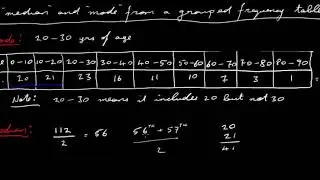 "median" and "mode" from a grouped frequency table
Mode: 20-30 yrs of age
0-10 10-20 20-30 30-40 40-50 50-60 60-70 70-80 80-90
20 21 23 16 11 10 7 3 1
Note: 20-30 means it includes 20 but not 30
Median: 112/2 = 56 56TH + 57TH / 2 20
21
41